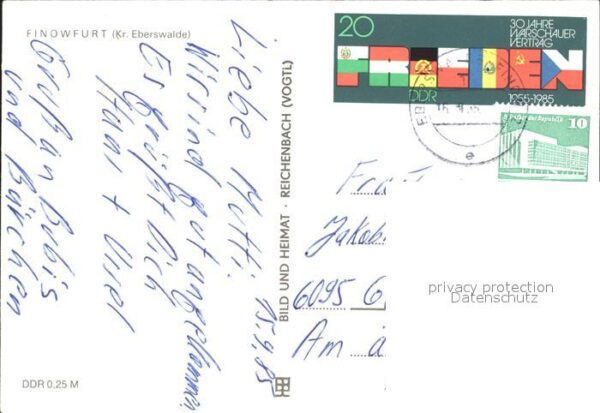 FINOWFURT (Kr. Eberswalde)
Liebe Mutti! 15.9.85
Wir sind gut angekommen
Es grüßt Dich
Hans + Ursel
Gruß an Bubis
und Bärchen
DDR 0,25 M
BILD UND HEIMAT · REICHENBACH (VOGTL)
20
30 JAHRE
WARSCHAUER
VERTRAG
FRIEDEN
DDR
1955-1985
Palast der Republik 10
Jakob
6095 G
Am
privacy protection
Datenschutz